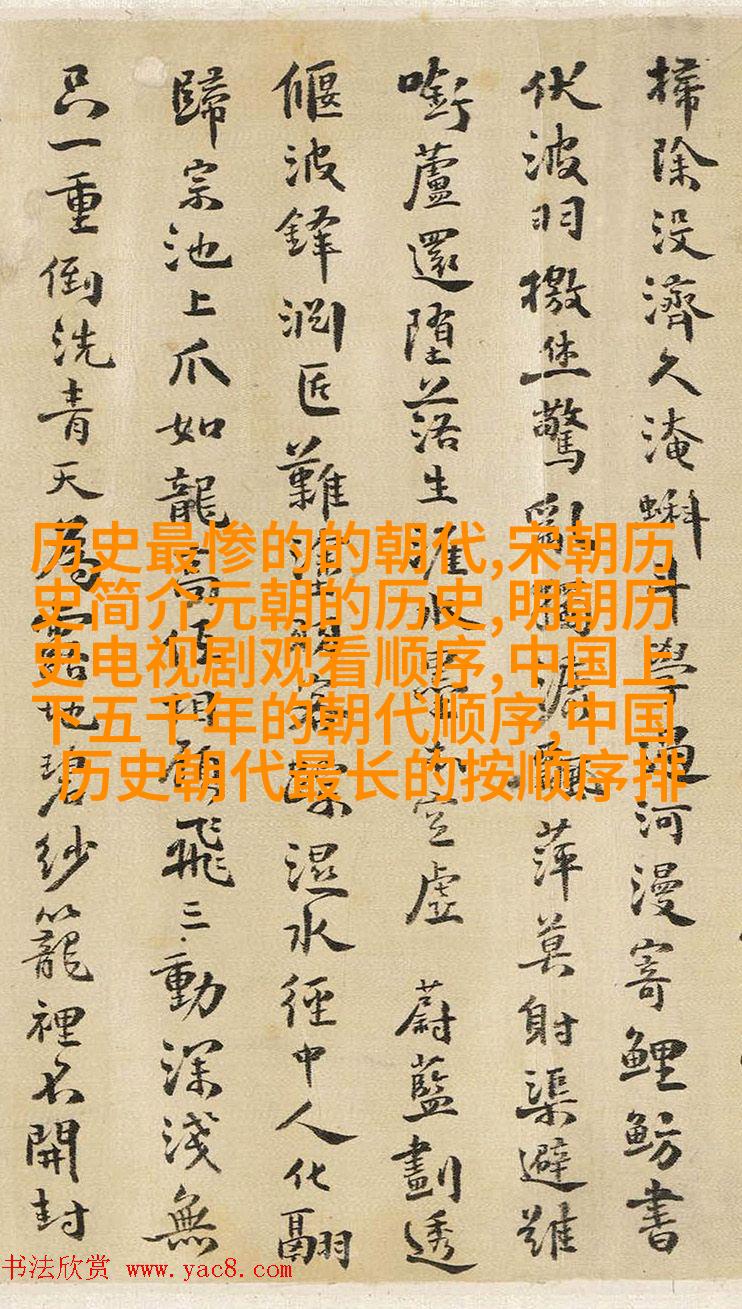 掃除没濟久淹蝌斗學通河漫寄鯉魴書
伏波羽檄驚亂萍莫射渠避
啣蘆還墮落生水墨空虛 蔚藍劃透
偃波鋒難濕水徑中人化翮
歸宗池上爪如龍高低相顧飛三動深淺無
只一重倒洗青天為地碧紗籠裡不開封
历史最惨的的朝代,宋朝历
史简介元朝的历史,明朝历
史电视剧观看顺序,中国上
下五千年的朝代顺序,中国
历史朝代最长的按顺序排
书法欣赏 www.yac8.com